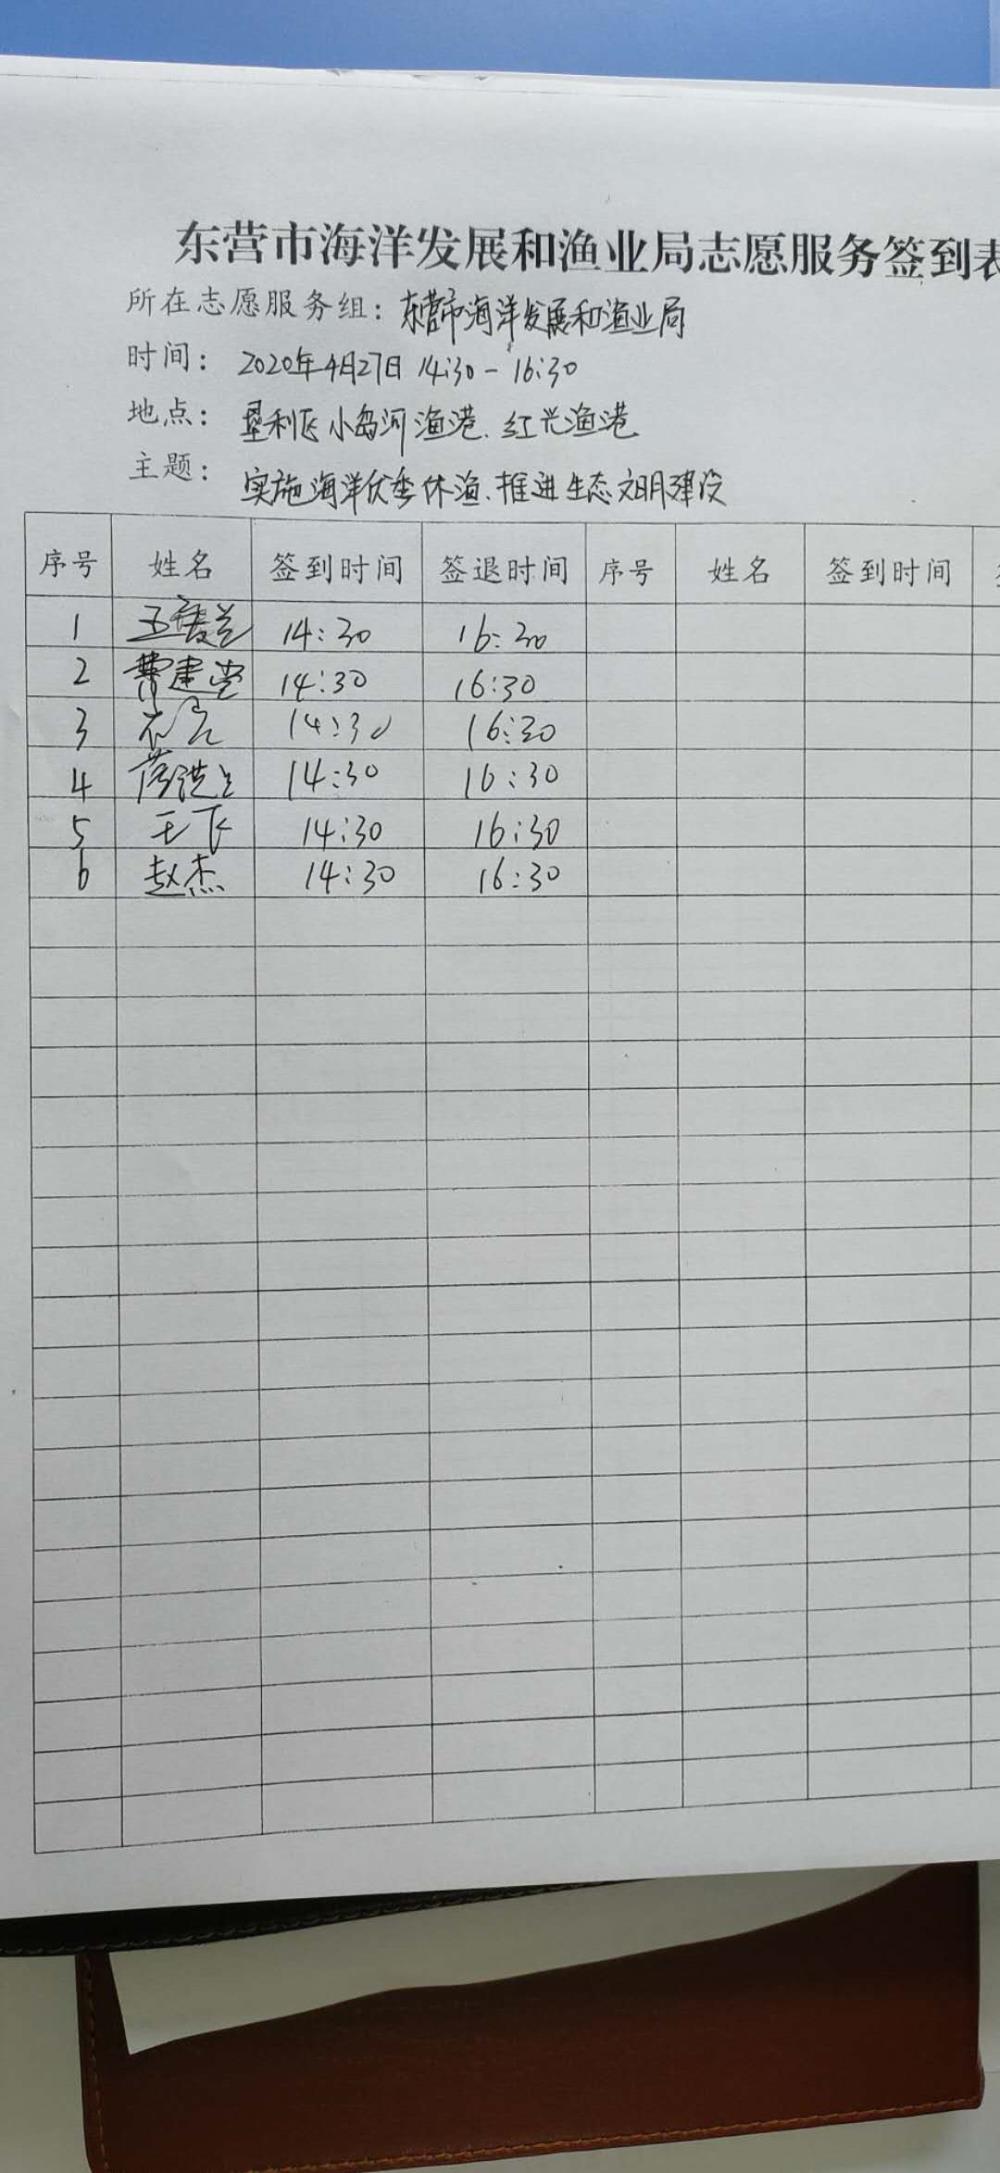 东营市海洋发展和渔业局志愿服务签到表
所在志愿服务组：东营市海洋发展和渔业局
时间：2020年4月27日 14:30-16:30
地点：垦利区小岛河渔港、红光渔港
主题：实施海洋伏季休渔、推进生态文明建设
序号 姓名 签到时间 签退时间 序号 姓名 签到时间
1 14:30 16:30
2 14:30 16:30
3 14:30 16:30
4 14:30 16:30
5 王飞 14:30 16:30
6 赵杰 14:30 16:30